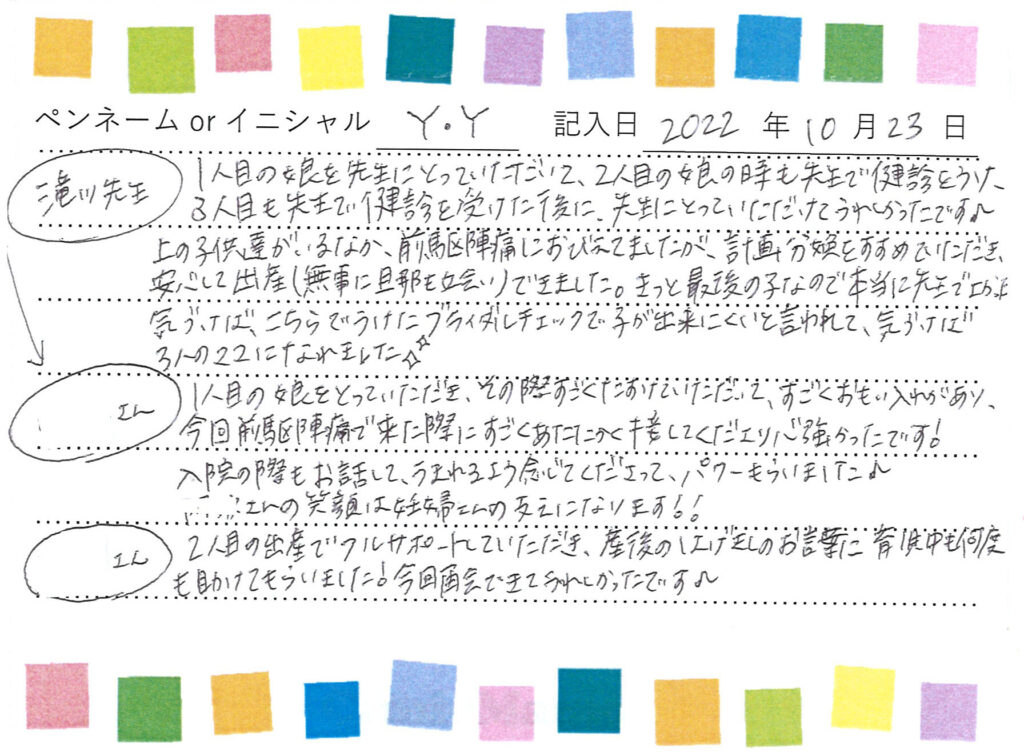 ペンネーム or イニシャル Y.Y 記入日 2022 年 10 月 23 日
滝川先生
1人目の娘を先生にとっていただいて、2人目の娘の時も先生で健診をうけ、
3人目も先生で健診を受けた後に、先生にとっていただけてうれしかったです♪
上の子供達がいるなか、前駆陣痛におびえてましたが、計画分娩をすすめていただき、
安心して出産(無事に旦那も立会い)できました。きっと最後の子なので本当に先生で
気づけば、こちらでうけたブライダルチェックで子が出来にくいと言われて、気づけば
3人のママになれました✧✧
さん
1人目の娘をとっていただき、その際すごくたすけていただいて、すごくおもい入れがあり、
今回前駆陣痛で来た際にすごくあたたかく接してくださり心強かったです!
入院の際もお話して、うまれるよう念じてくださって、パワーもらいました♪
さんの笑顔は妊婦さんの支えになります!!
さん
2人目の出産でフルサポートしていただき、産後のはげましのお言葉に育児中も何度
も助けてもらいました!今回再会できてうれしかったです♪